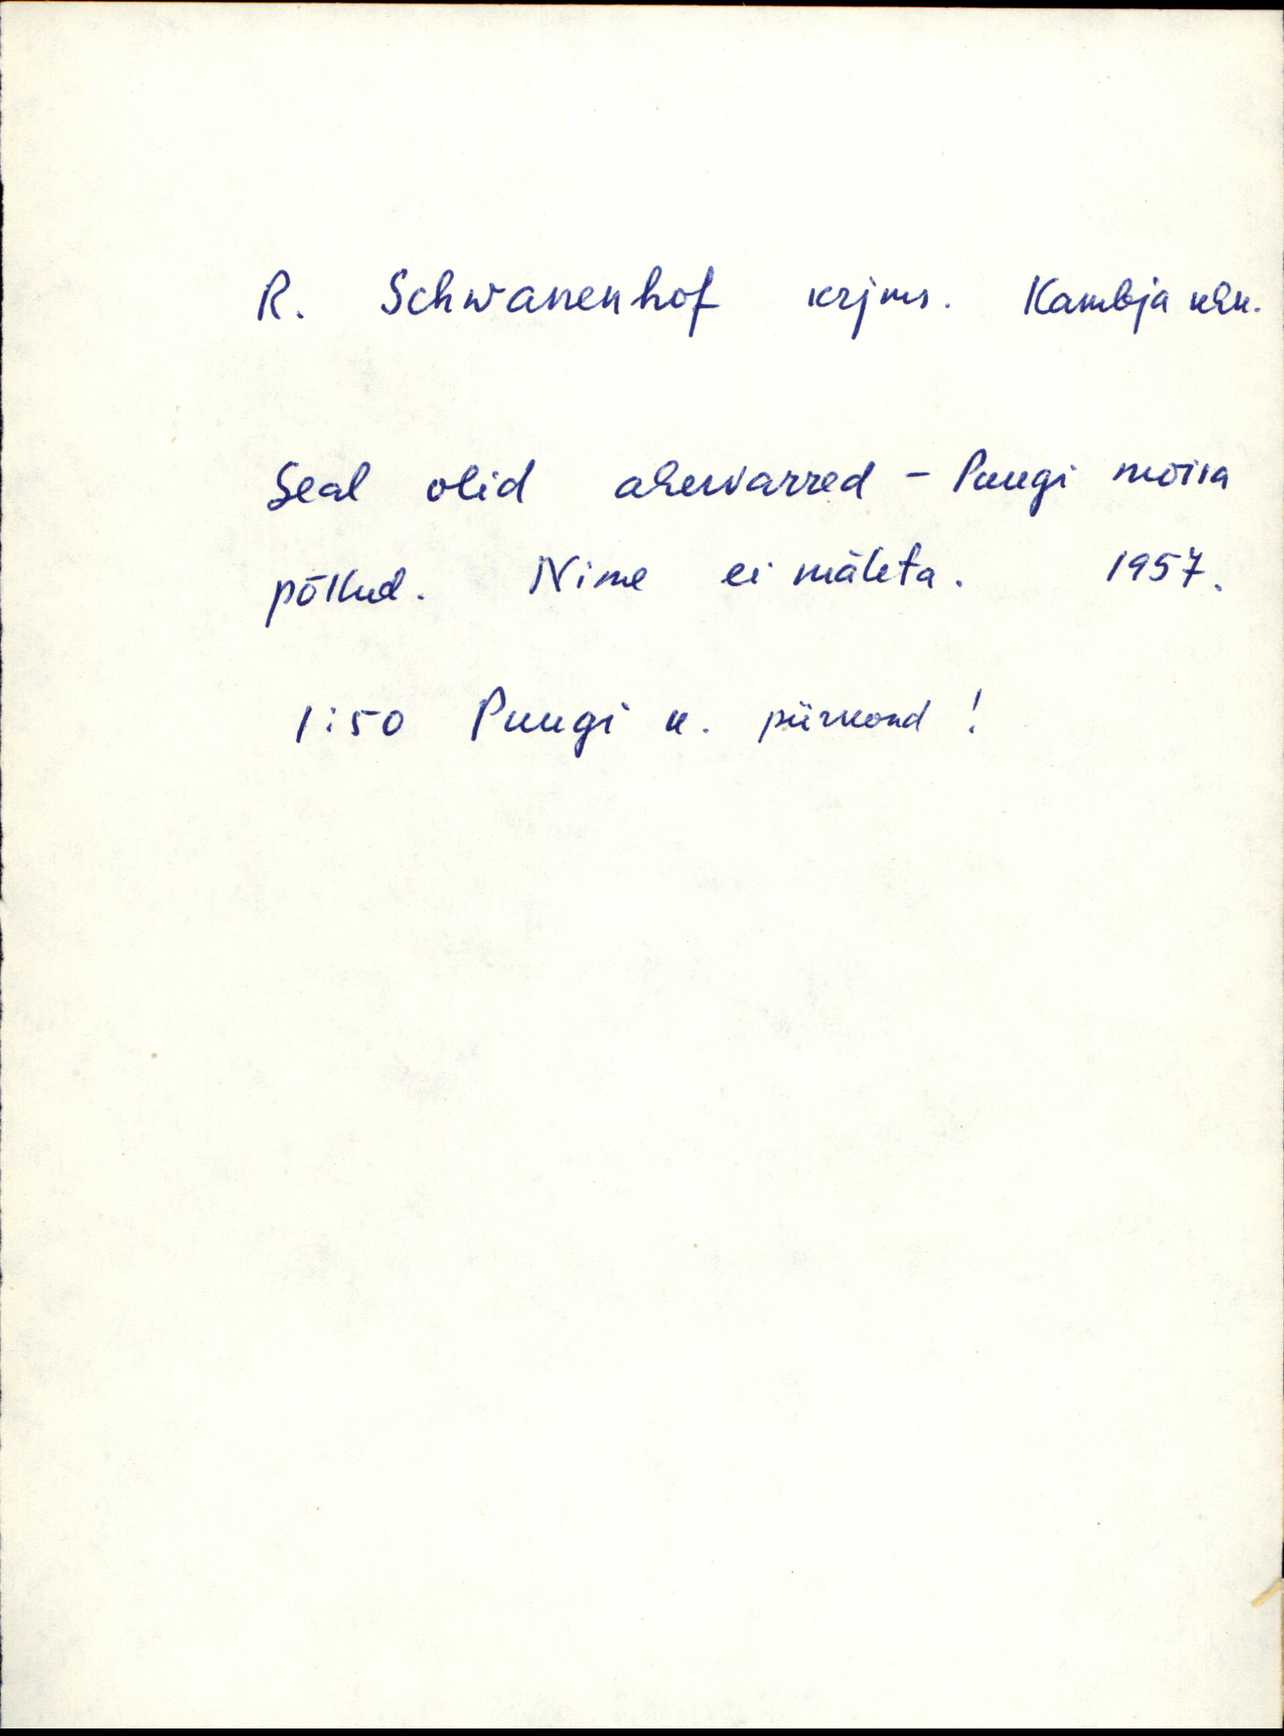 R. Schwanenhof krjms. Kambja khk.
Seal olid ahervarred - Puugi mõisa
põllud. Nime ei mäleta. 1957.
1:50 Puugi k. piirkond!